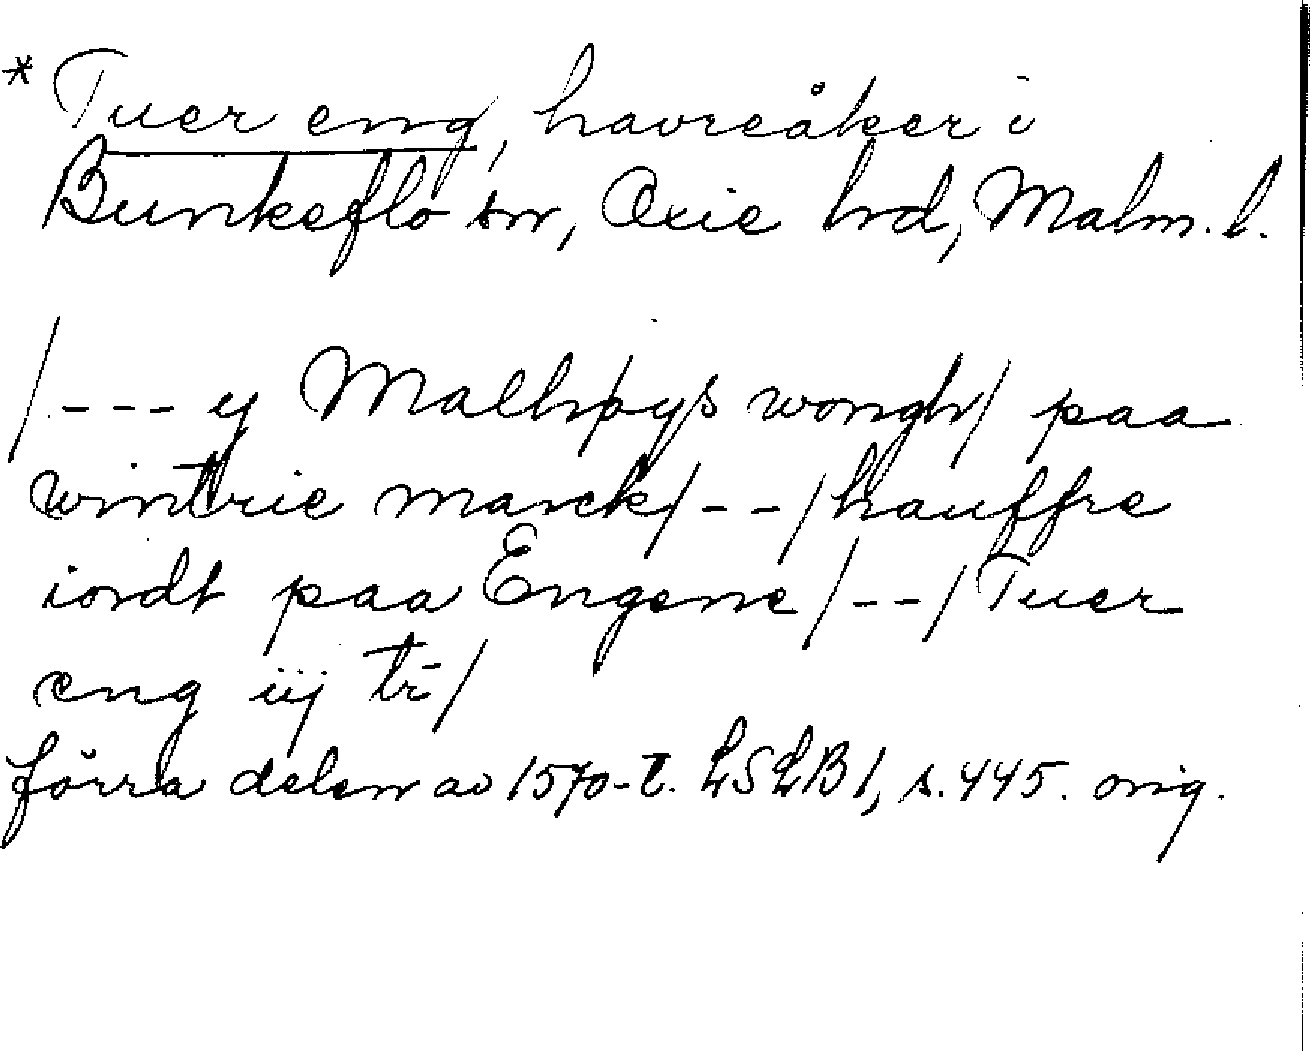 * Tuer eng, havreåker i
Bunkeflo sn, Oxie hrd, Malm. l.
/--- y Malhøys wongh/ paa
wintrie marck/--/hauffre
iordt paa Engene/--/Tuer
eng iij tr/
förra delen av 1570-t. LSLB 1, s. 445. orig.